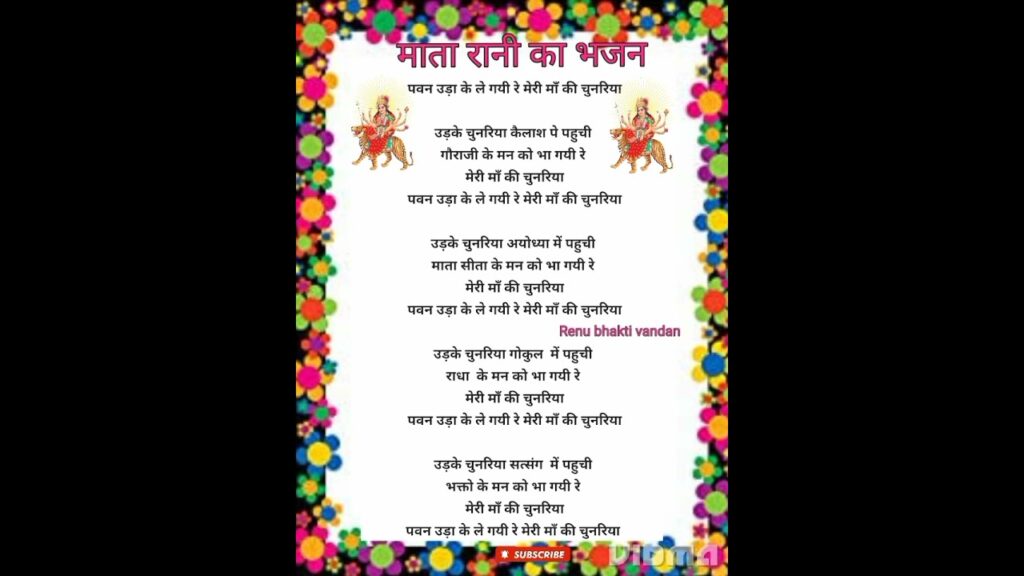 माता रानी का भजन
पवन उड़ा के ले गयी रे मेरी माँ की चुनरिया
उड़के चुनरिया कैलाश पे पहुची
गौराजी के मन को भा गयी रे
मेरी माँ की चुनरिया
पवन उड़ा के ले गयी रे मेरी माँ की चुनरिया
उड़के चुनरिया अयोध्या में पहुची
माता सीता के मन को भा गयी रे
मेरी माँ की चुनरिया
पवन उड़ा के ले गयी रे मेरी माँ की चुनरिया
Renu bhakti vandan
उड़के चुनरिया गोकुल में पहुची
राधा के मन को भा गयी रे
मेरी माँ की चुनरिया
पवन उड़ा के ले गयी रे मेरी माँ की चुनरिया
उड़के चुनरिया सत्संग में पहुची
भक्तो के मन को भा गयी रे
मेरी माँ की चुनरिया
पवन उड़ा के ले गयी रे मेरी माँ की चुनरिया
SUBSCRIBE